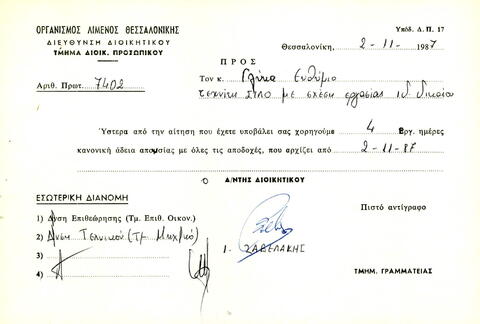 ΟΡΓΑΝΙΣΜΟΣ ΛΙΜΕΝΟΣ ΘΕΣΣΑΛΟΝΙΚΗΣ
ΔΙΕΥΘΥΝΣΗ ΔΙΟΙΚΗΤΙΚΟΥ
ΤΜΗΜΑ ΔΙΟΙΚ. ΠΡΟΣΩΠΙΚΟΥ
Υπόδ. Δ. Π. 17
Θεσσαλονίκη, 2-11-1987
Αριθ. Πρωτ. 7402
ΠΡΟΣ
Τον κ. Γκίκα Ευθύμιο
τεχνίτη ΣΙΛΟ με σχέση εργασίας ιδ. δικαίου
Ύστερα από την αίτηση που έχετε υποβάλει σας χορηγούμε 4 εργ. ημέρες
κανονική άδεια απουσίας με όλες τις αποδοχές, που αρχίζει από 2-11-87
Ο
Δ/ΝΤΗΣ ΔΙΟΙΚΗΤΙΚΟΥ
ΕΣΩΤΕΡΙΚΗ ΔΙΑΝΟΜΗ
1) Δνση Επιθεώρησης (Τμ. Επιθ. Οικον.)
2) Δνση Τεχνικού (Τμ. Μηχ/κό)
3)
4)
Ι. ΣΑΒΕΛΑΚΗΣ
Πιστό αντίγραφο
ΤΜΗΜ. ΓΡΑΜΜΑΤΕΙΑΣ